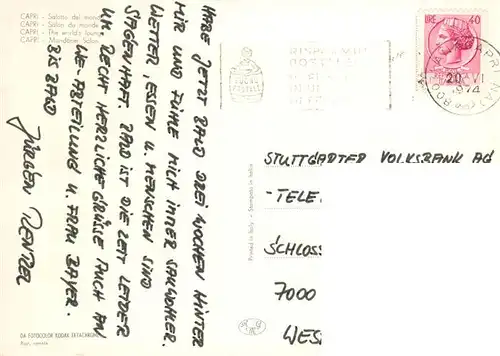 CAPRI - Salotto del mondo
CAPRI - Salon du monde
CAPRI - The world's lounge
CAPRI - Mondäner Salon
HABE JETZT BALD DREI WOCHEN HINTER
MIR UND FÜHLE MICH IMMER SAUWOHLER.
WETTER, ESSEN U. MENSCHEN SIND
SAGENHAFT. BALD IST DIE ZEIT LEIDER
UM. RECHT HERRLICHE GRÜSSE AUCH AN
DIE-ABTEILUNG U. FRAU BAYER.
BIS BALD
JÜRGEN
DA FOTOCOLOR KODAK EKTACHROME
Printed in Italy - Stampato in Italia
LIRE 40
20 VI
1974
STUTTGARTER VOLKSBANK AG
-TELE
SCHLOSS
7000
WES